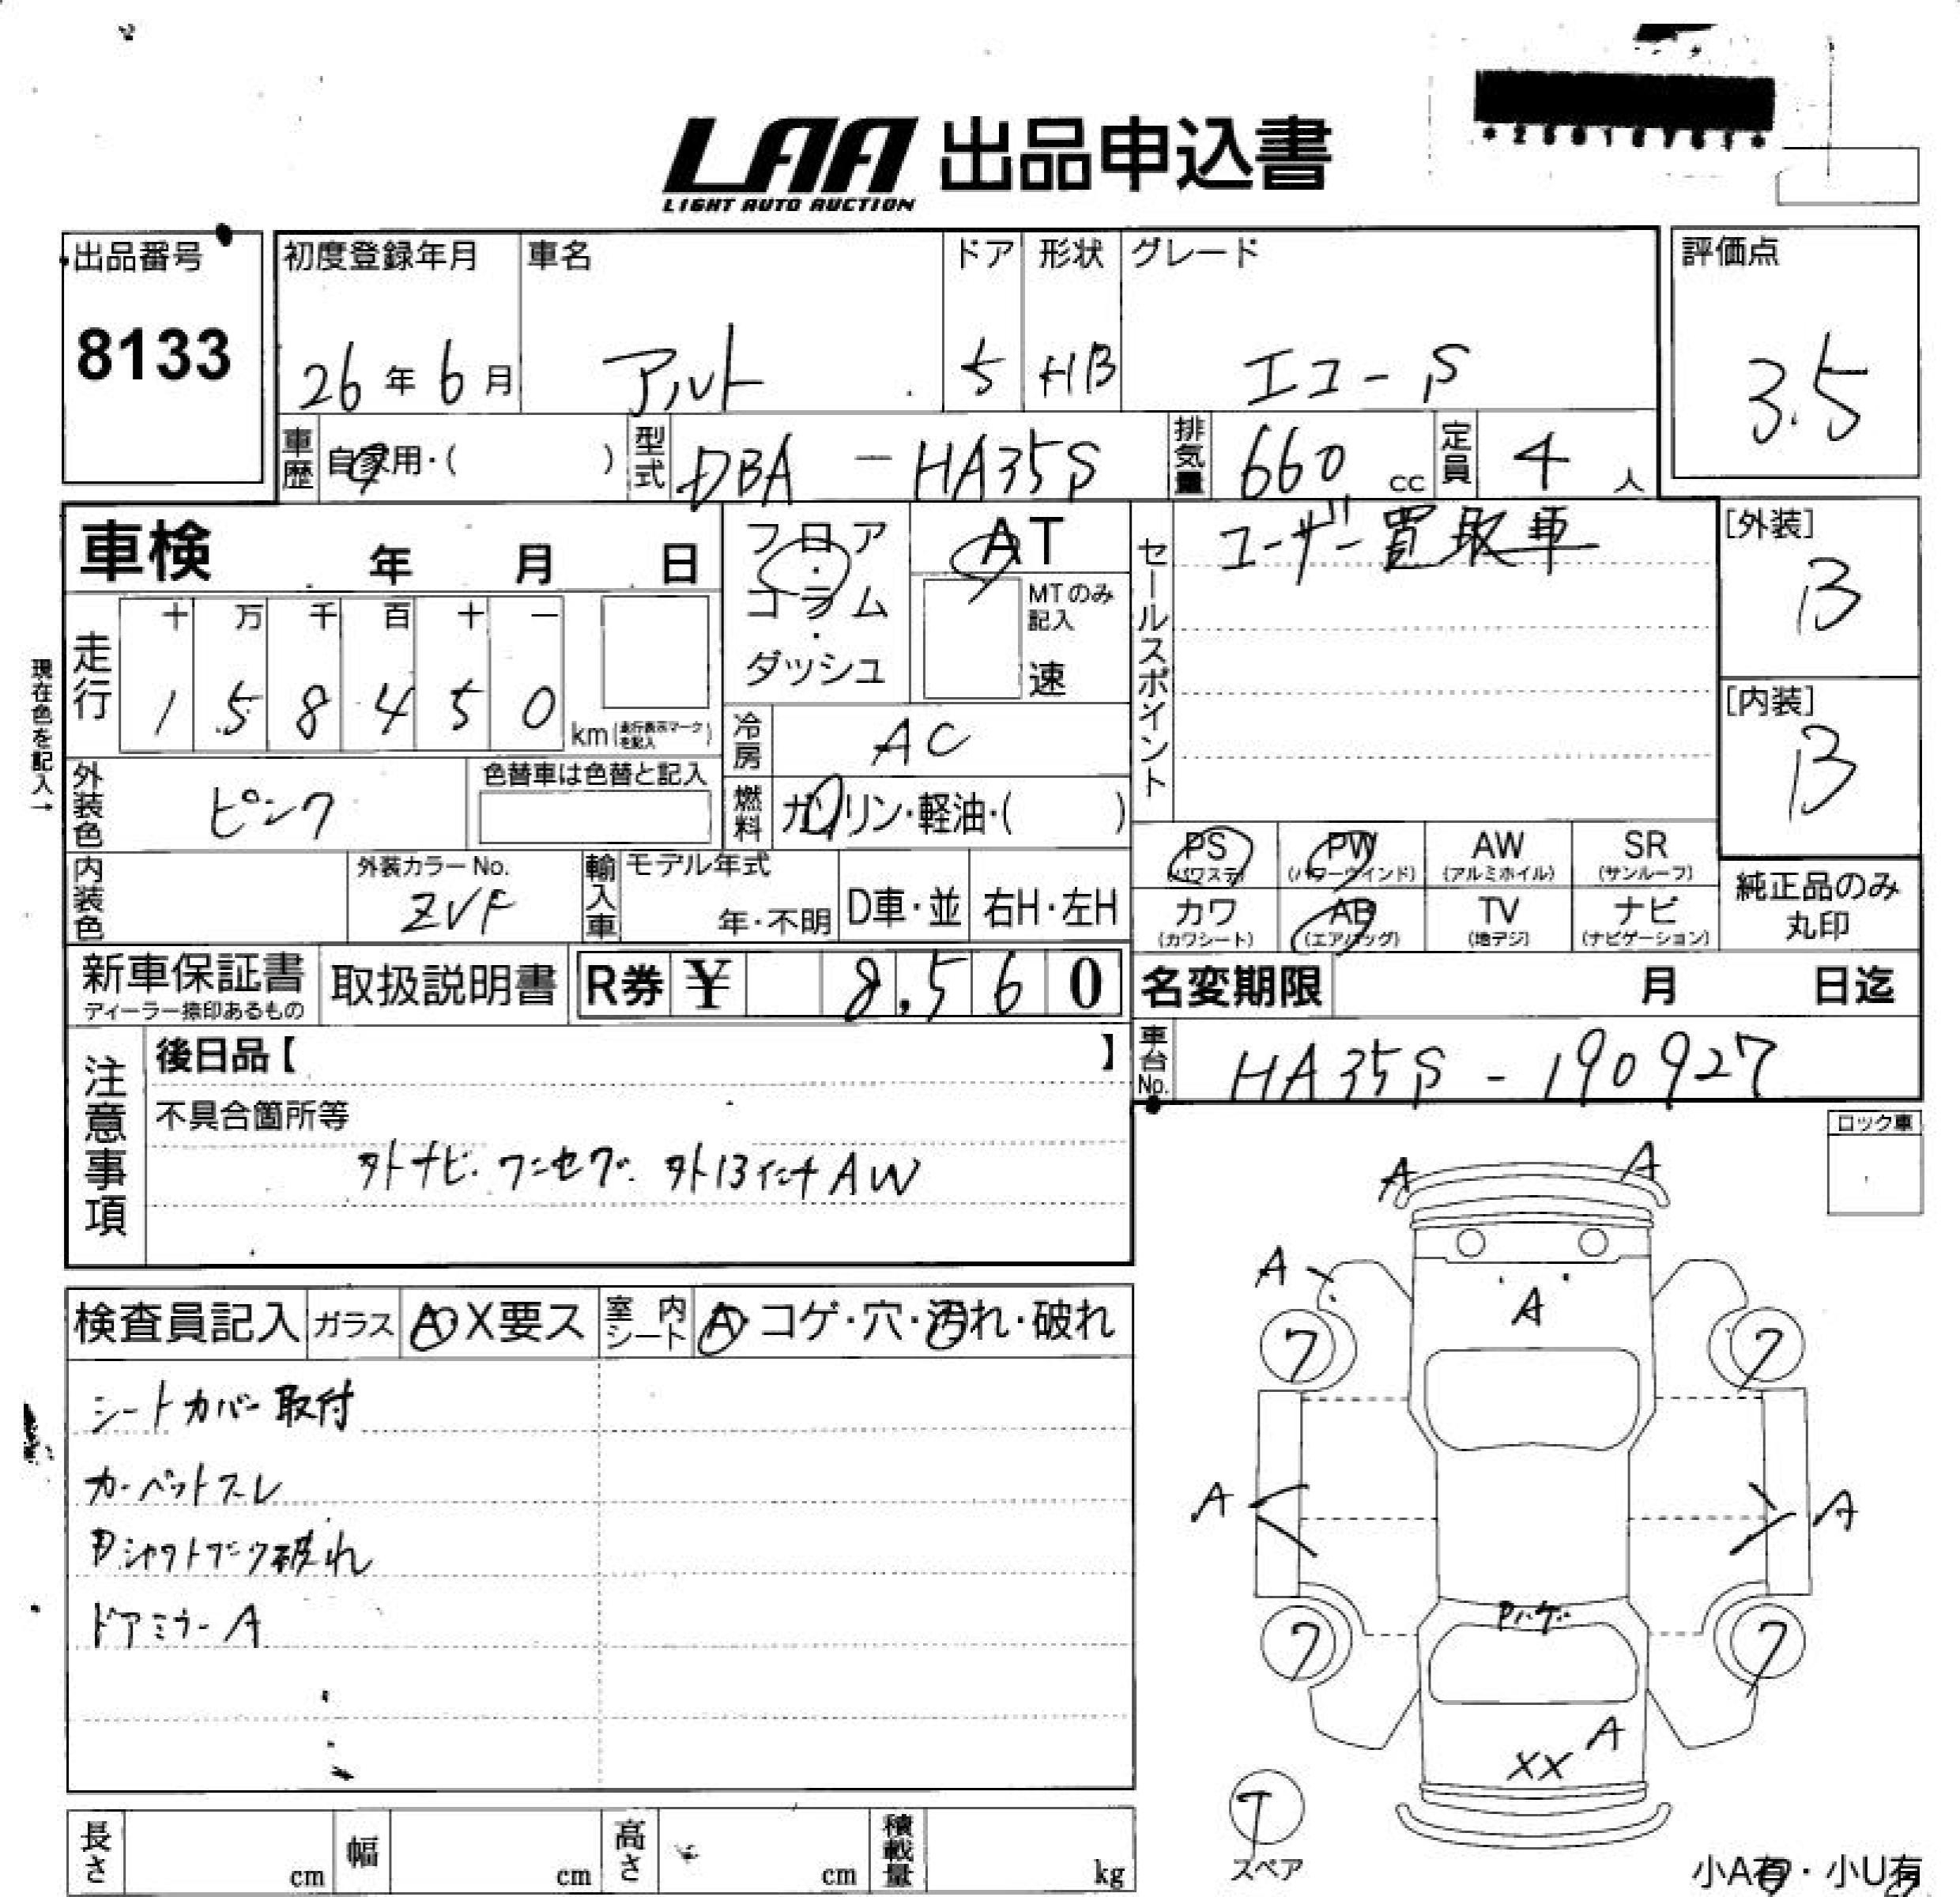 LAA 出品申込書
LIGHT AUTO AUCTION
出品番号
8133
初度登録年月
26年6月
車名
アルト
ドア
5
形状
HB
グレード
エコ-S
評価点
3.5
車歴
自家用・( )
型式
DBA - HA35S
排気量
660 cc
定員
4 人
車検 年 月 日
フロア
・
コラム
・
ダッシュ
AT
MTのみ
記入
速
セールスポイント
ユーザー買取車
[外装]
B
[内装]
B
現在色を記入→
走行
十 万 千 百 十 一
1 5 8 4 5 0
km(走行表示マークを記入)
冷房
AC
外装色
ピンク
色替車は色替と記入
燃料
ガソリン・軽油・( )
内装色
外装カラーNo.
ZVF
輸入車
モデル年式
年・不明
D車・並
右H・左H
PS
(パワステ)
PW
(パワーウインド)
AW
(アルミホイル)
SR
(サンルーフ)
カワ
(カワシート)
AB
(エアバッグ)
TV
(地デジ)
ナビ
(ナビゲーション)
純正品のみ
丸印
新車保証書
ディーラー捺印あるもの
取扱説明書
R券 ¥ 8,560
名変期限 月 日迄
車台No.
HA35S - 190927
注意事項
後日品【 】
不具合箇所等
外ナビ.ワンセグ.外13インチAW
ロック車
検査員記入
ガラス
A・X要ス
室内シート
A・コゲ・穴・汚れ・破れ
シートカバー取付
カーペットスレ
Dシャフトブーツ破れ
ドアミラーA
A A
A
A
フ フ
A A
フ フ
A
XX
T
スペア
長さ cm
幅 cm
高さ cm
積載量 kg
小A有・小U有